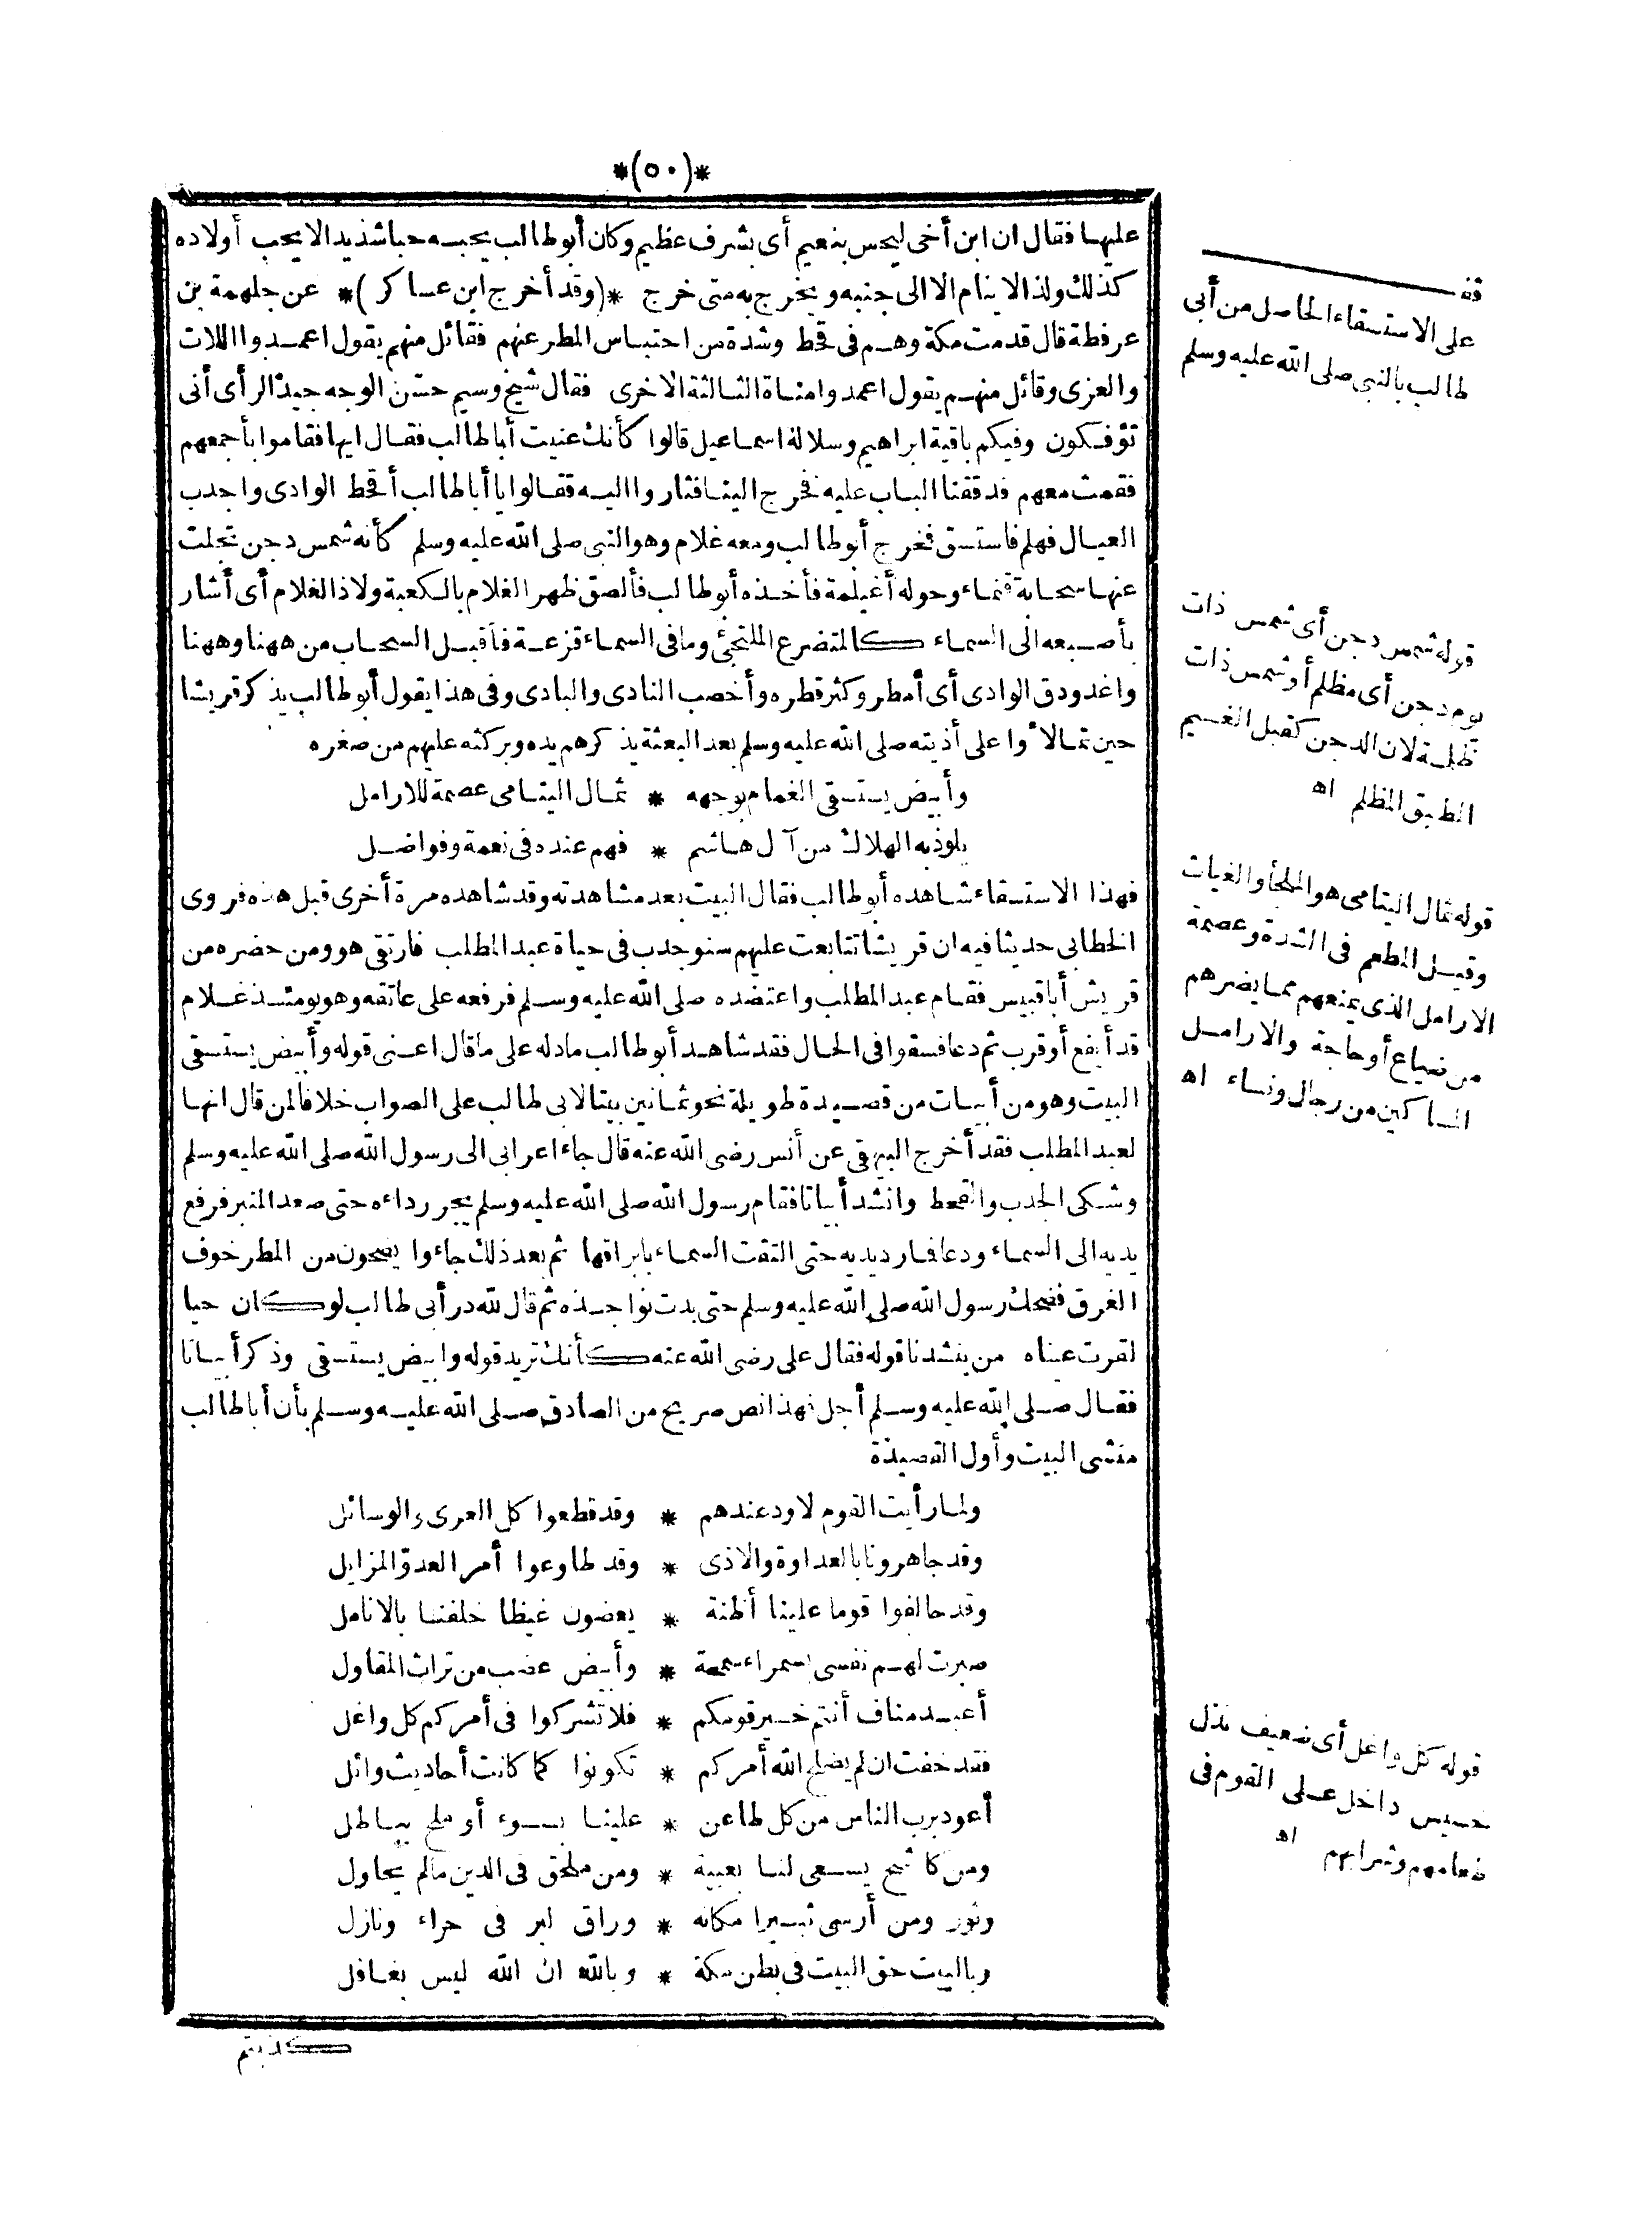 *(٥٠)*
عليها فقال ان ابن أخى ليحس بنعيم أى بشرف عظيم وكان أبو طالب يحبه حبا شديدا لا يحب أولاده
كذلك ولذا لا ينام الا الى جنبه ويخرج به متى خرج *(وقد أخرج ابن عساكر)* عن جلهمة بن
عرفطة قال قدمت مكة وهم فى قحط وشدة من احتباس المطر عنهم فقائل منهم يقول اعمدوا اللات
والعزى وقائل منهم يقول اعمدوا مناة الثالثة الاخرى فقال شيخ وسيم حسن الوجه جيد الرأى أنى
تؤفكون وفيكم باقية ابراهيم وسلالة اسماعيل قالوا كأنك عنيت أبا طالب فقال ايها فقاموا بأجمعهم
فقمت معهم فدققنا الباب عليه فخرج الينا فثاروا اليه فقالوا يا أبا طالب أقحط الوادى واجدب
العيال فهلم فاستسق فخرج أبو طالب ومعه غلام وهو النبى صلى الله عليه وسلم كأنه شمس دجن تجلت
عنها سحابة قتماء وحوله أغيلمة فأخذه أبو طالب فألصق ظهر الغلام بالكعبة ولاذ الغلام أى أشار
بأصبعه الى السماء كالمتضرع الملتجئ وما فى السماء قزعة فأقبل السحاب من ههنا وههنا
واغدودق الوادى أى أمطر وكثر قطره وأخصب النادى والبادى وفى هذا يقول أبو طالب يذكر قريشا
حين تمالأوا على أذيته صلى الله عليه وسلم بعد البعثة يذكرهم يده وبركته عليهم من صغره
وأبيض يستسقى الغمام بوجهه * ثمال اليتامى عصمة للارامل
يلوذ به الهلاك من آل هاشم * فهم عنده فى نعمة وفواضل
فهذا الاستسقاء شاهده أبو طالب فقال البيت بعد مشاهدته وقد شاهده مرة أخرى قبل هذه فروى
الخطابى حديثا فيه ان قريشا تتابعت عليهم سنو جدب فى حياة عبد المطلب فارتقى هو ومن حضره من
قريش أبا قبيس فقام عبد المطلب واعتضده صلى الله عليه وسلم فرفعه على عاتقه وهو يومئذ غلام
قد أيفع أو قرب ثم دعا فسقوا فى الحال فقد شاهد أبو طالب ما دله على ما قال اعنى قوله وأبيض يستسقى
البيت وهو من أبيات من قصيدة طويلة نحو ثمانين بيتا لابى طالب على الصواب خلافا لمن قال انها
لعبد المطلب فقد أخرج البيهقى عن أنس رضى الله عنه قال جاء اعرابى الى رسول الله صلى الله عليه وسلم
وشكى الجدب والقحط وانشد أبياتا فقام رسول الله صلى الله عليه وسلم يجر رداءه حتى صعد المنبر فرفع
يديه الى السماء ودعا فما رد يديه حتى التقت السماء بابراقها ثم بعد ذلك جاءوا يضجون من المطر خوف
الغرق فضحك رسول الله صلى الله عليه وسلم حتى بدت نواجذه ثم قال لله در أبى طالب لو كان حيا
لقرت عيناه من ينشدنا قوله فقال على رضى الله عنه كأنك تريد قوله وابيض يستسقى وذكر أبياتا
فقال صلى الله عليه وسلم أجل فهذا نص صريح من الصادق صلى الله عليه وسلم بأن أبا طالب
منشى البيت وأول القصيدة
ولما رأيت القوم لا ود عندهم * وقد قطعوا كل العرى والوسائل
وقد جاهرونا بالعداوة والاذى * وقد طاوعوا أمر العدو المزايل
وقد حالفوا قوما علينا أظنة * يعضون غيظا خلفنا بالانامل
صبرت لهم نفسى بسمراء سمحة * وأبيض عضب من تراث المقاول
أعبد مناف أنتم خير قومكم * فلا تشركوا فى أمركم كل واغل
فقد خفت ان لم يصلح الله أمركم * تكونوا كما كانت أحاديث وائل
أعوذ برب الناس من كل طاعن * علينا بسوء أو ملح بباطل
ومن كاشح يسعى لنا بعيبة * ومن ملحق فى الدين مالم يحاول
وثور ومن أرسى ثبيرا مكانه * وراق لبر فى حراء ونازل
وبالبيت حق البيت فى بطن مكة * وبالله ان الله ليس بغافل
كذبتم
قف
على الاستسقاء الحاصل من أبى
طالب بالنبى صلى الله عليه وسلم
قوله شمس دجن أى شمس ذات
يوم دجن أى مظلم أو شمس ذات
ظلمة لان الدجن كقبل الغيم
المطبق المظلم اه
قوله ثمال اليتامى هو الملجأ والغياث
وقيل المطعم فى الشدة وعصمة
الارامل الذى يمنعهم مما يضرهم
من ضياع أو حاجة والارامل
المساكين من رجال ونساء اه
قوله كل واغل أى ضعيف نذل
خسيس داخل على القوم فى
طعامهم وشرابهم اه